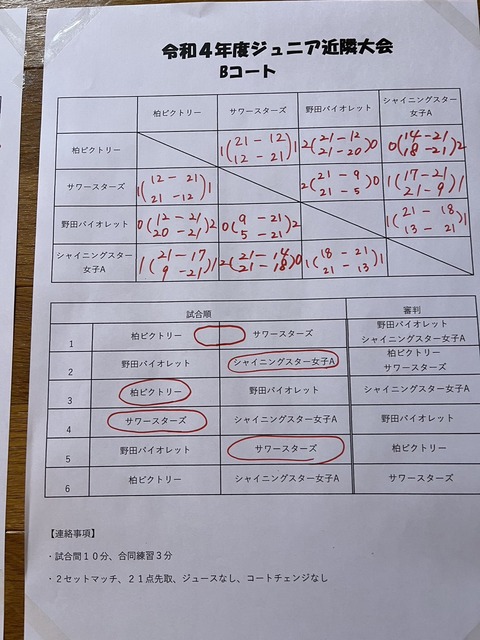 令和４年度ジュニア近隣大会
Bコート
柏ビクトリー サワースターズ 野田バイオレット シャイニングスター
女子A
柏ビクトリー 1(21-12 12-21)1 2(21-12 21-20)0 0(14-21 18-21)2
サワースターズ 1(12-21 21-12)1 2(21-9 21-5)0 1(17-21 21-9)1
野田バイオレット 0(12-21 20-21)2 0(9-21 5-21)2 1(21-18 13-21)1
シャイニングスター
女子A 1(21-17 9-21)1 2(21-14 21-18)0 1(18-21 21-13)1
試合順 審判
1 柏ビクトリー サワースターズ 野田バイオレット
シャイニングスター女子A
2 野田バイオレット シャイニングスター女子A 柏ビクトリー
サワースターズ
3 柏ビクトリー 野田バイオレット シャイニングスター女子A
4 サワースターズ シャイニングスター女子A 野田バイオレット
5 野田バイオレット サワースターズ 柏ビクトリー
6 柏ビクトリー シャイニングスター女子A サワースターズ
【連絡事項】
・試合間１０分、合同練習３分
・２セットマッチ、２１点先取、ジュースなし、コートチェンジなし